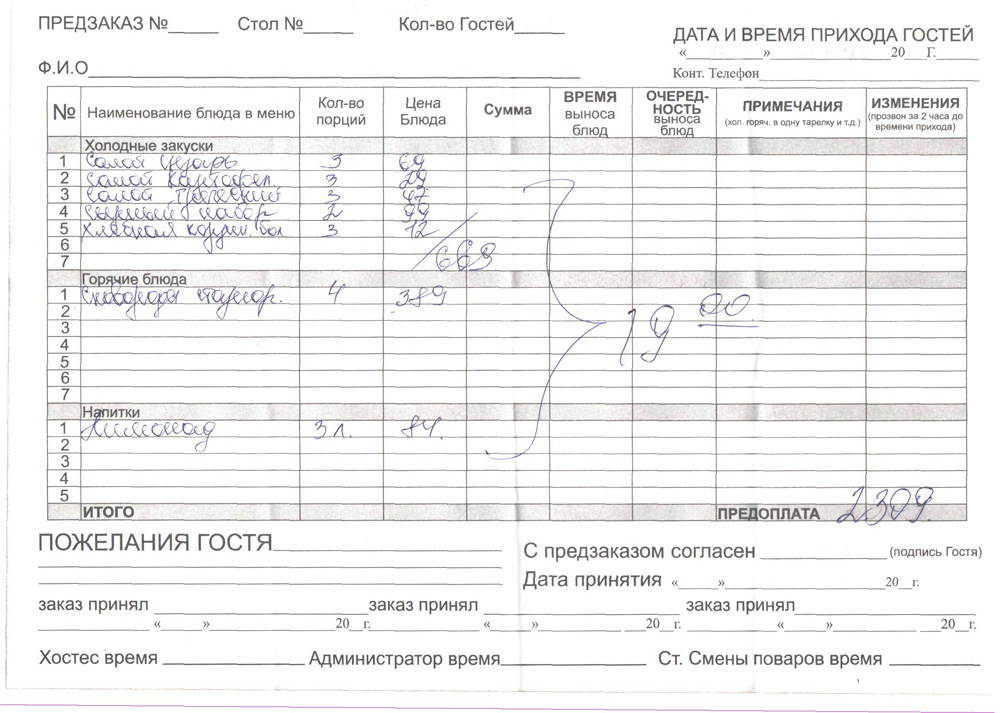 ПРЕДЗАКАЗ №_____ Стол №_____ Кол-во Гостей_____
ДАТА И ВРЕМЯ ПРИХОДА ГОСТЕЙ
«________»____________20___Г.______
Ф.И.О__________________________
Конт. Телефон__________________
№ Наименование блюда в меню Кол-во порций Цена Блюда Сумма ВРЕМЯ выноса блюд ОЧЕРЕД-НОСТЬ выноса блюд ПРИМЕЧАНИЯ (хол. горяч. в одну тарелку и т.д.) ИЗМЕНЕНИЯ (прозвон за 2 часа до времени прихода)
Холодные закуски
1 Салат Цезарь 3 69
2 Салат Картофел. 3 29
3 Салат Греческий 3 47
4 Сырный набор 2 99
5 Хлебная корзин. бол. 3 12
6
7 669
Горячие блюда
1 Сковорода 4 389
2
3 19 00
4
5
6
7
Напитки
1 Лимонад 3 л. 84.
2
3
4
5
ИТОГО ПРЕДОПЛАТА 2309.
ПОЖЕЛАНИЯ ГОСТЯ__________________
С предзаказом согласен ____________(подпись Гостя)
Дата принятия «_____»________________20__г.
заказ принял ____________________заказ принял ____________________ заказ принял____________________
_____________ «_____»______________20__г. _____________ «_____»______________ ___20__г. _____________ «_____»______________ ___20__г.
Хостес время ______________ Администратор время______________ Ст. Смены поваров время __________